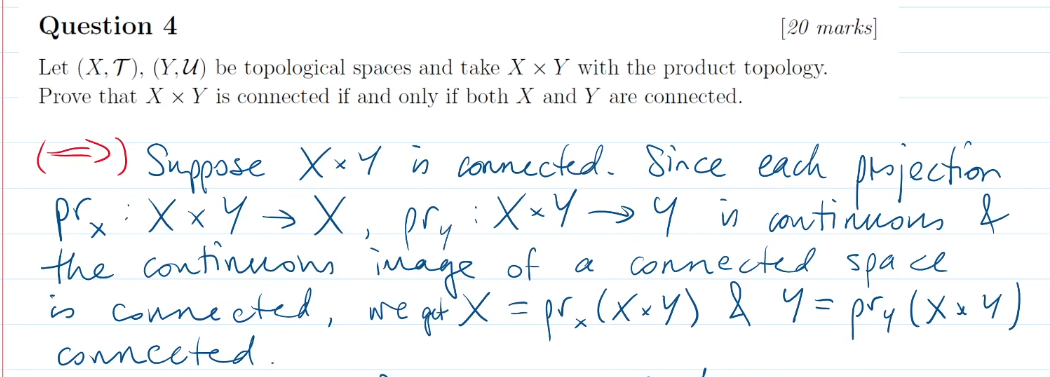 Question 4 [20 marks]
Let (X, 𝒯), (Y, 𝒰) be topological spaces and take X × Y with the product topology.
Prove that X × Y is connected if and only if both X and Y are connected.
(⟹) Suppose X × Y is connected. Since each projection
pr_X : X × Y → X, pr_Y : X × Y → Y is continuous &
the continuous image of a connected space
is connected, we get X = pr_X(X × Y) & Y = pr_Y(X × Y)
connected.